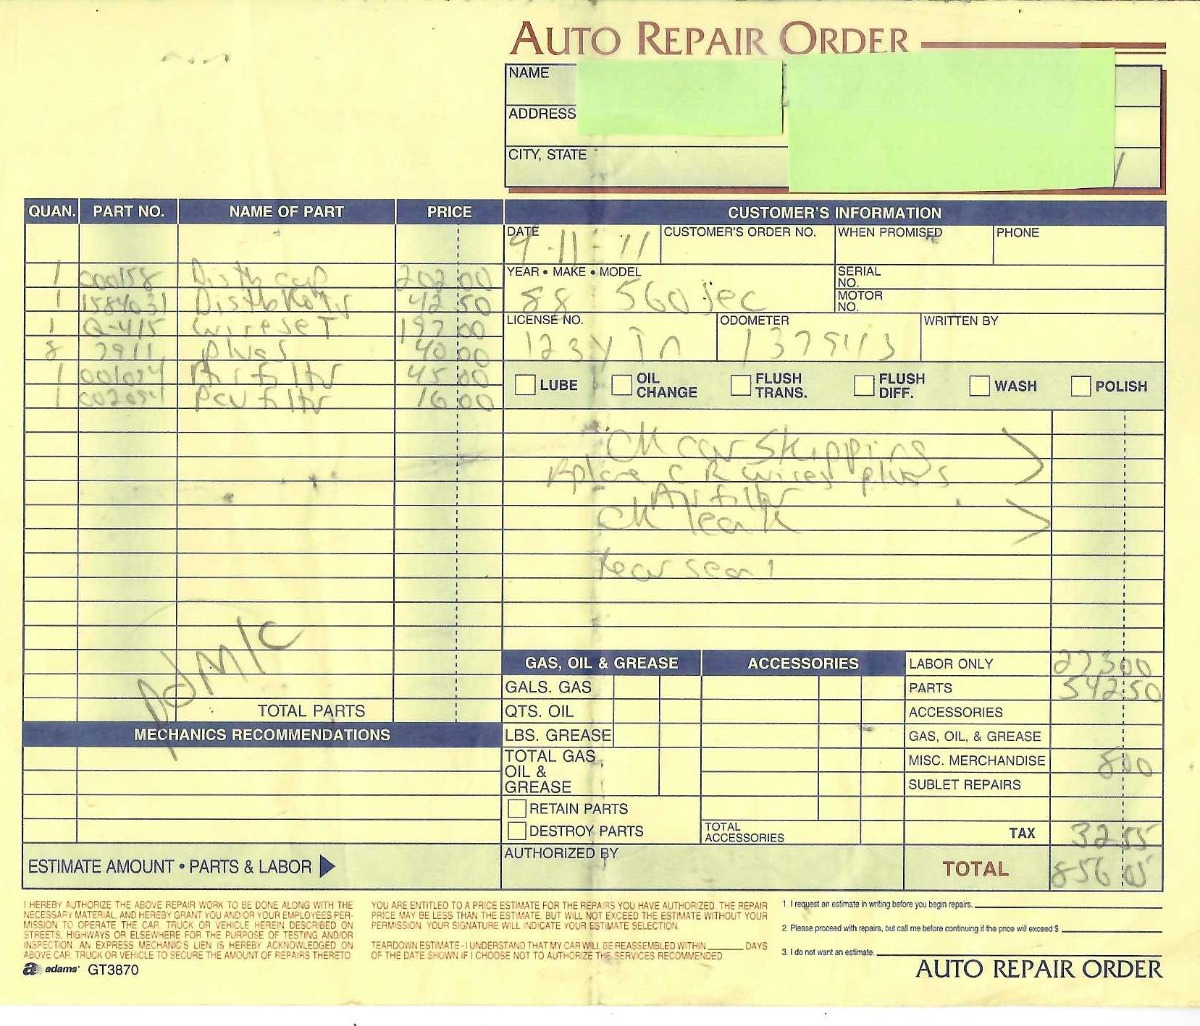 AUTO REPAIR ORDER
NAME
ADDRESS
CITY, STATE
QUAN. PART NO. NAME OF PART PRICE
CUSTOMER'S INFORMATION
DATE 9-11-11 CUSTOMER'S ORDER NO. WHEN PROMISED PHONE
1 000158 Distb cap 202 00
YEAR • MAKE • MODEL 88 560 sec
SERIAL NO.
MOTOR NO.
1 1584031 42 50
1 Q-415 wireset 197 00
8 7911 plugs 40 00
LICENSE NO. ODOMETER WRITTEN BY
1 Air filtr 45 00
1 Pcv filtr 16 00
LUBE OIL CHANGE FLUSH TRANS. FLUSH DIFF. WASH POLISH
CK car skipping
C R wires plugs
Air filtr
CK leak
rear seal
pd M/C
TOTAL PARTS
MECHANICS RECOMMENDATIONS
ESTIMATE AMOUNT • PARTS & LABOR
GAS, OIL & GREASE ACCESSORIES
GALS. GAS
QTS. OIL
LBS. GREASE
TOTAL GAS, OIL & GREASE
RETAIN PARTS
DESTROY PARTS
TOTAL ACCESSORIES
AUTHORIZED BY
LABOR ONLY 273 00
PARTS 542 50
ACCESSORIES
GAS, OIL, & GREASE
MISC. MERCHANDISE 8 00
SUBLET REPAIRS
TAX 32 55
TOTAL 856 05
I HEREBY AUTHORIZE THE ABOVE REPAIR WORK TO BE DONE ALONG WITH THE
NECESSARY MATERIAL, AND HEREBY GRANT YOU AND/OR YOUR EMPLOYEES PER-
MISSION TO OPERATE THE CAR, TRUCK OR VEHICLE HEREIN DESCRIBED ON
STREETS, HIGHWAYS OR ELSEWHERE FOR THE PURPOSE OF TESTING AND/OR
INSPECTION. AN EXPRESS MECHANIC'S LIEN IS HEREBY ACKNOWLEDGED ON
ABOVE CAR, TRUCK OR VEHICLE TO SECURE THE AMOUNT OF REPAIRS THERETO.
YOU ARE ENTITLED TO A PRICE ESTIMATE FOR THE REPAIRS YOU HAVE AUTHORIZED. THE REPAIR
PRICE MAY BE LESS THAN THE ESTIMATE, BUT WILL NOT EXCEED THE ESTIMATE WITHOUT YOUR
PERMISSION. YOUR SIGNATURE WILL INDICATE YOUR ESTIMATE SELECTION.
TEARDOWN ESTIMATE - I UNDERSTAND THAT MY CAR WILL BE REASSEMBLED WITHIN DAYS
OF THE DATE SHOWN IF I CHOOSE NOT TO AUTHORIZE THE SERVICES RECOMMENDED.
1. I request an estimate in writing before you begin repairs.
2. Please proceed with repairs, but call me before continuing if the price will exceed $
3. I do not want an estimate.
adams GT3870
AUTO REPAIR ORDER